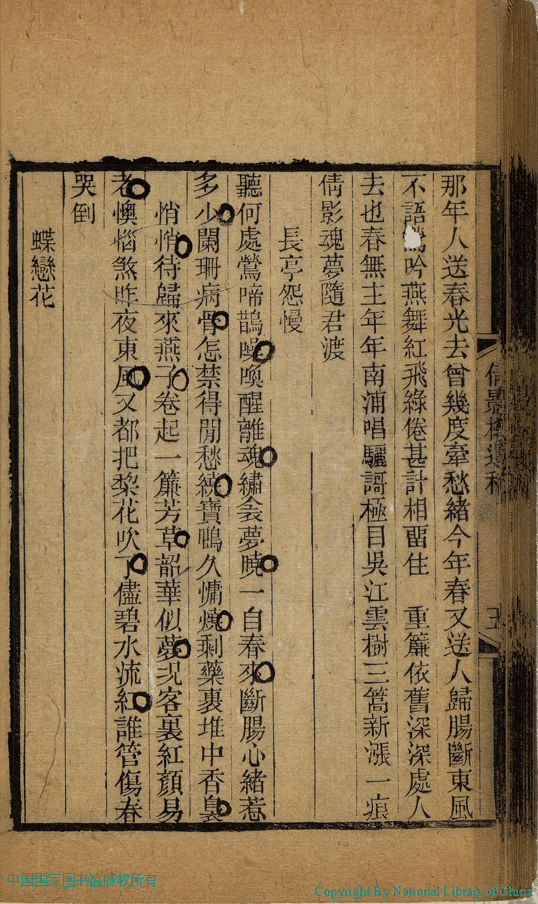 那年人送春光去曾幾度牽愁緒今年春又送人歸腸斷東風
不語鶯吟燕舞紅飛綠倦甚計相畱住　重簾依舊深深處人
去也春無主年年南浦唱驪謌極目吳江雲樹三篙新漲一痕
倩影魂夢隨君渡
長亭怨慢
聽何處鶯啼鵲喚醒離魂繡衾夢曉一自春來斷腸心緒惹
多少闌珊病骨怎禁得閒愁繞寶鴨久慵燒剩藥裹堆中香裊
悄悄待歸來燕子卷起一簾芳草韶華似夢況客裏紅顏易
老懊惱煞昨夜東風又都把梨花吹了儘碧水流紅誰管傷春
哭倒
蝶戀花
倩影樓遺稿
五
中国国家图书馆版权所有
Copyright By National Library of China